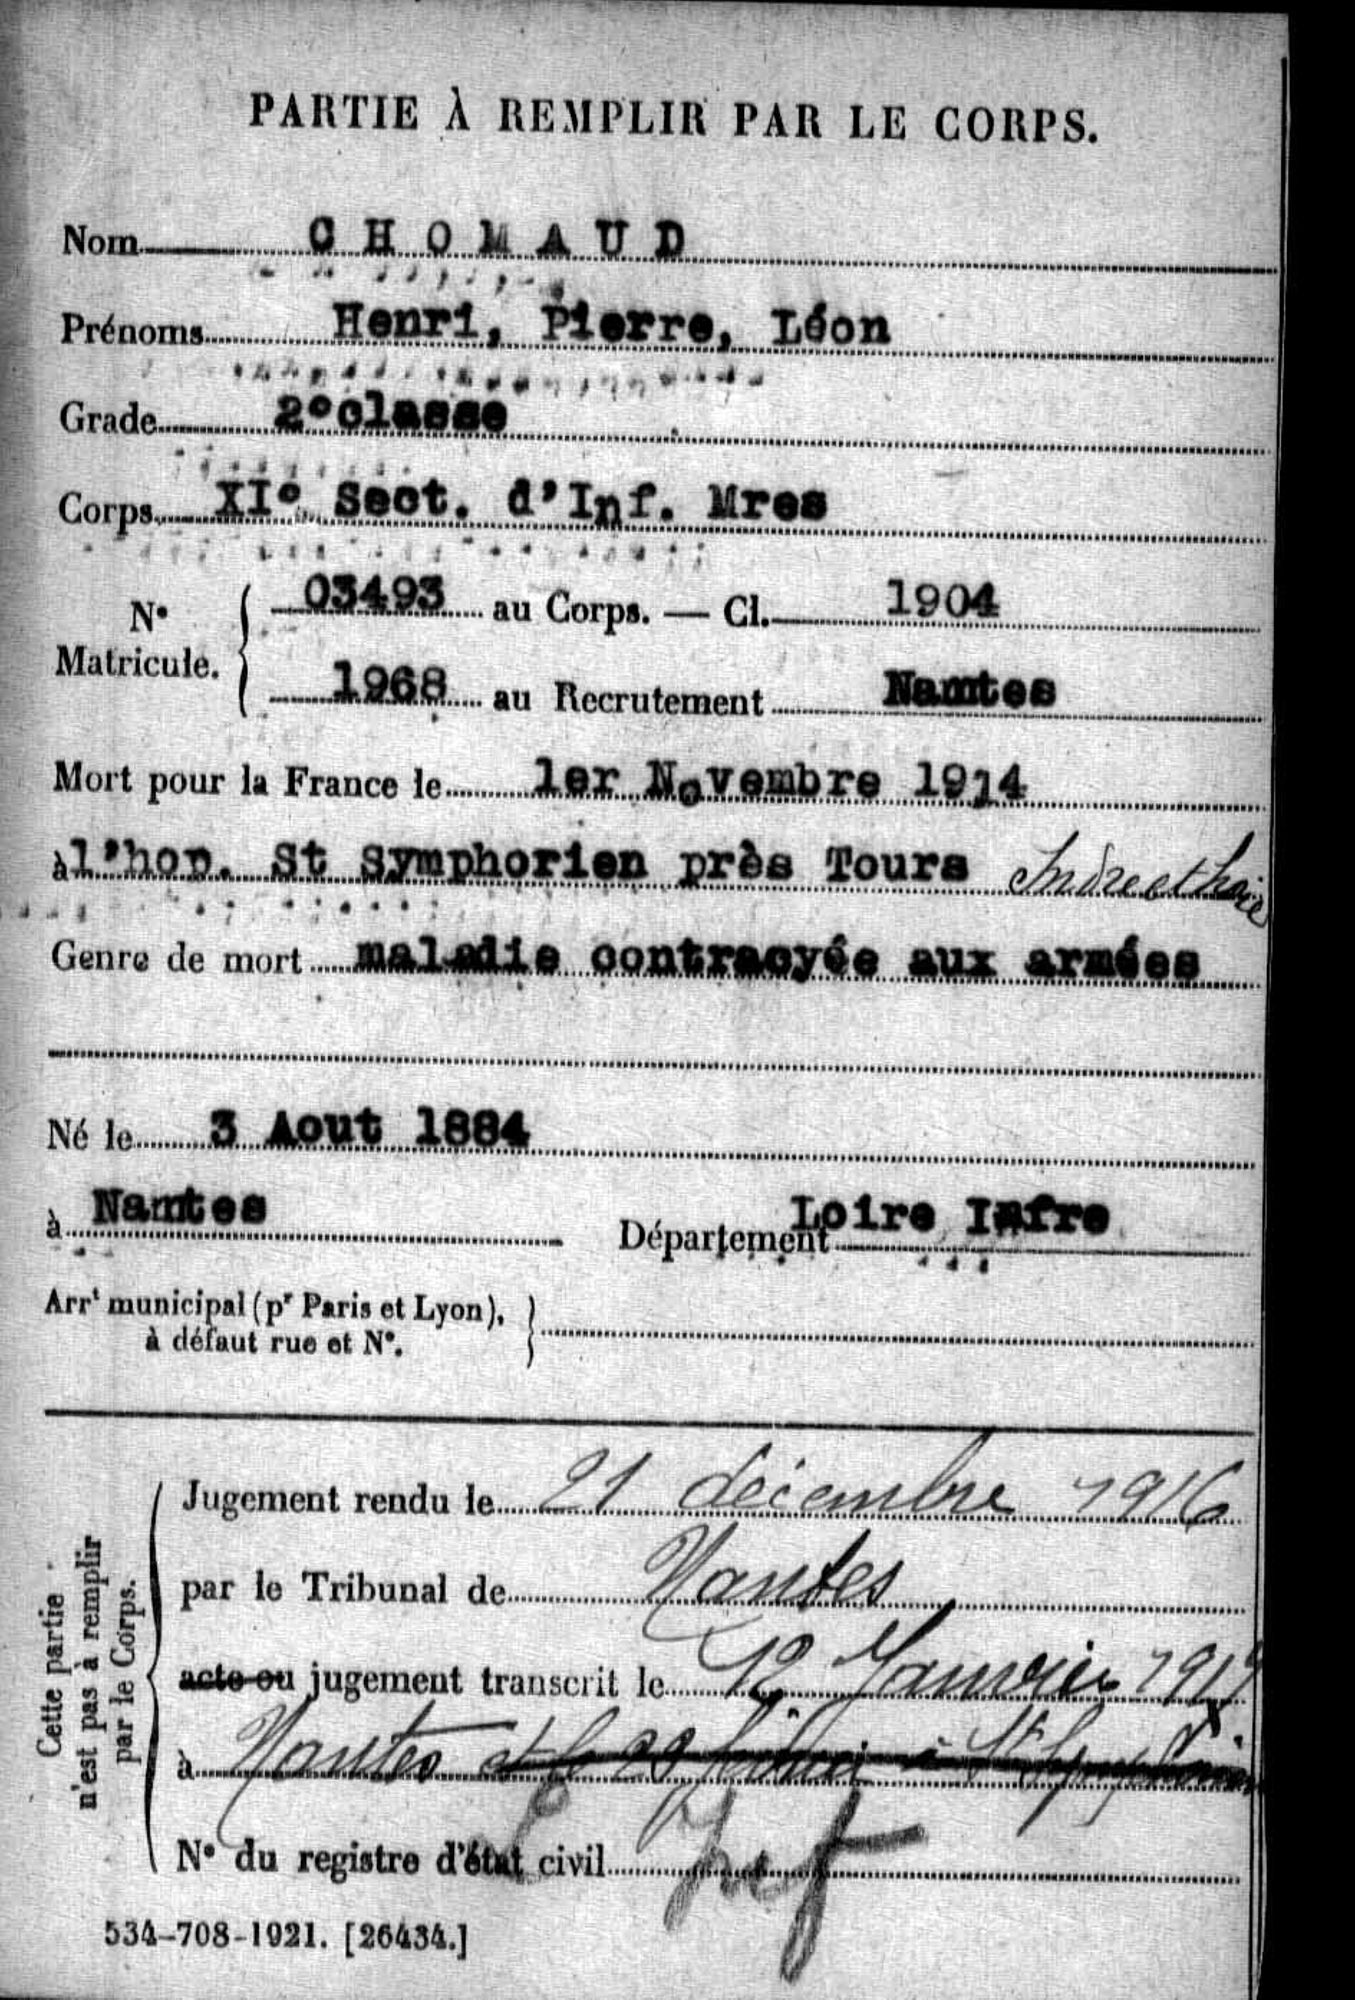 PARTIE À REMPLIR PAR LE CORPS.
Nom CHOMAUD
Prénoms Henri, Pierre, Léon
Grade 2°classe
Corps XI° Sect. d'Inf. Mres
N° Matricule. 03493 au Corps. — Cl. 1904
1968 au Recrutement Nantes
Mort pour la France le 1er Novembre 1914
à l'hop. St Symphorien près Tours Indre et Loire
Genre de mort maladie contracyée aux armées
Né le 3 Aout 1884
à Nantes Département Loire Infre
Arrt municipal (pr Paris et Lyon),
à défaut rue et N°.
Cette partie
n'est pas à remplir
par le Corps.
Jugement rendu le 21 décembre 1916
par le Tribunal de Nantes
acte ou jugement transcrit le 12 Janvier 1917
à Nantes et le
N° du registre d'état civil
534-708-1921. [26434.]